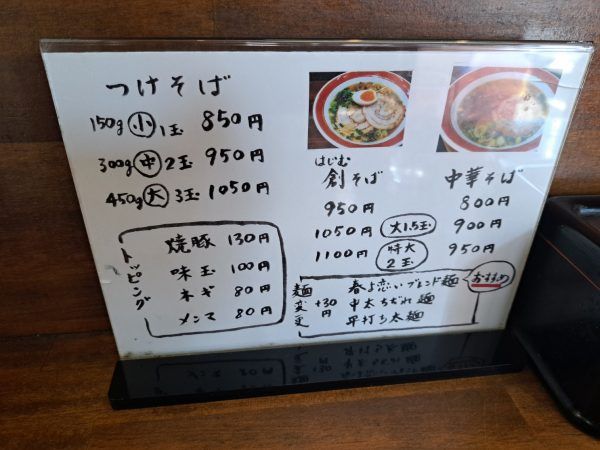 つけそば
150g 小 1玉 850円
300g 中 2玉 950円
450g 大 3玉 1050円
トッピング
焼豚 130円
味玉 100円
ネギ 80円
メンマ 80円
はじむ
創そば
950円
1050円 大1.5玉
1100円 特大2玉
中華そば
800円
900円
950円
麺変更 +30円
春よ恋いブレンド麺 おすすめ
中太ちぢれ麺
平打ち太麺